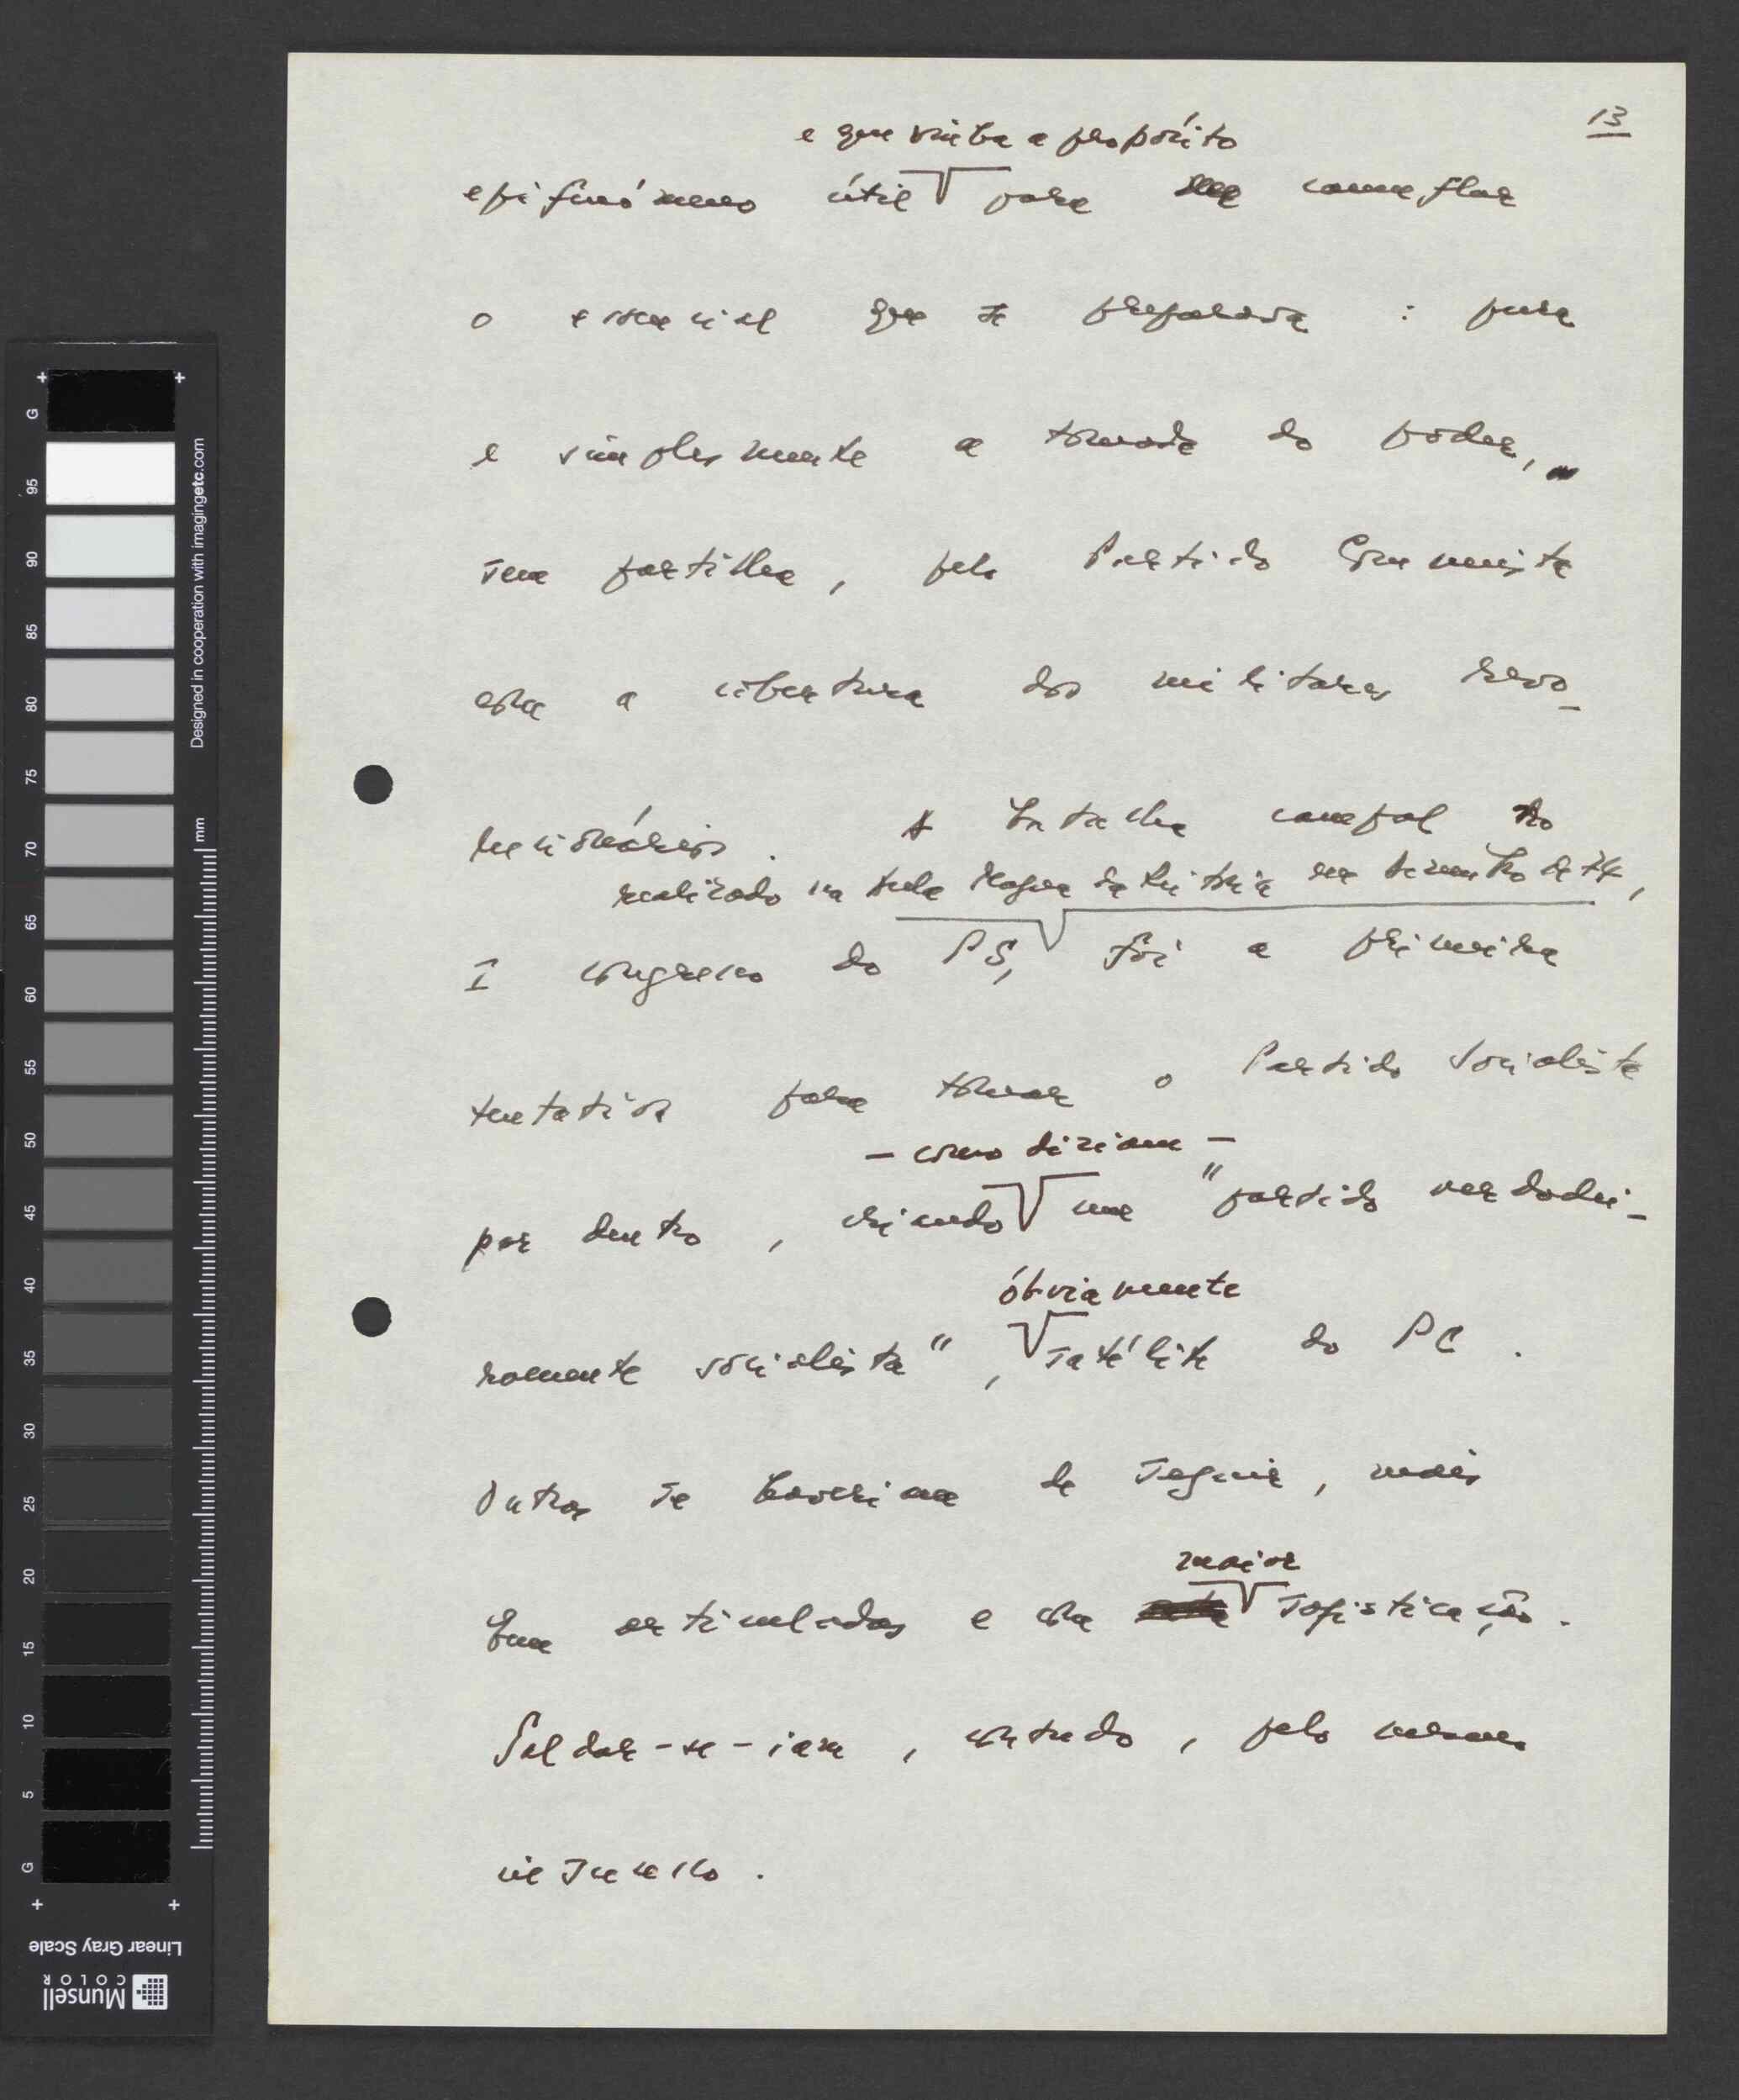 13
e que vinha a propósito
epifenómeno útil para camuflar
o essencial que se preparava : pura
e simplesmente a tomada do poder,
sem partilha, pelo Partido Comunista
com a cobertura dos militares revo-
lucionários. A batalha campal do
realizado na Aula Magna da Reitoria em Dezembro de 74,
I congresso do PS, foi a primeira
tentativa para tomar o Partido Socialista
- como diziam -
por dentro, criando um "partido verdadei-
obviamente
ramente socialista", satélite do PC.
Outras se haveriam de seguir, mais
maior
bem articuladas e com sofisticação.
Saldar-se-iam, contudo, pelo mesmo
insucesso.
G
95
90
85
80
75
70
65
60
55
50
45
40
35
30
25
20
15
10
5
G
mm
Designed in cooperation with imagingetc.com
Linear Gray Scale
Munsell
COLOR